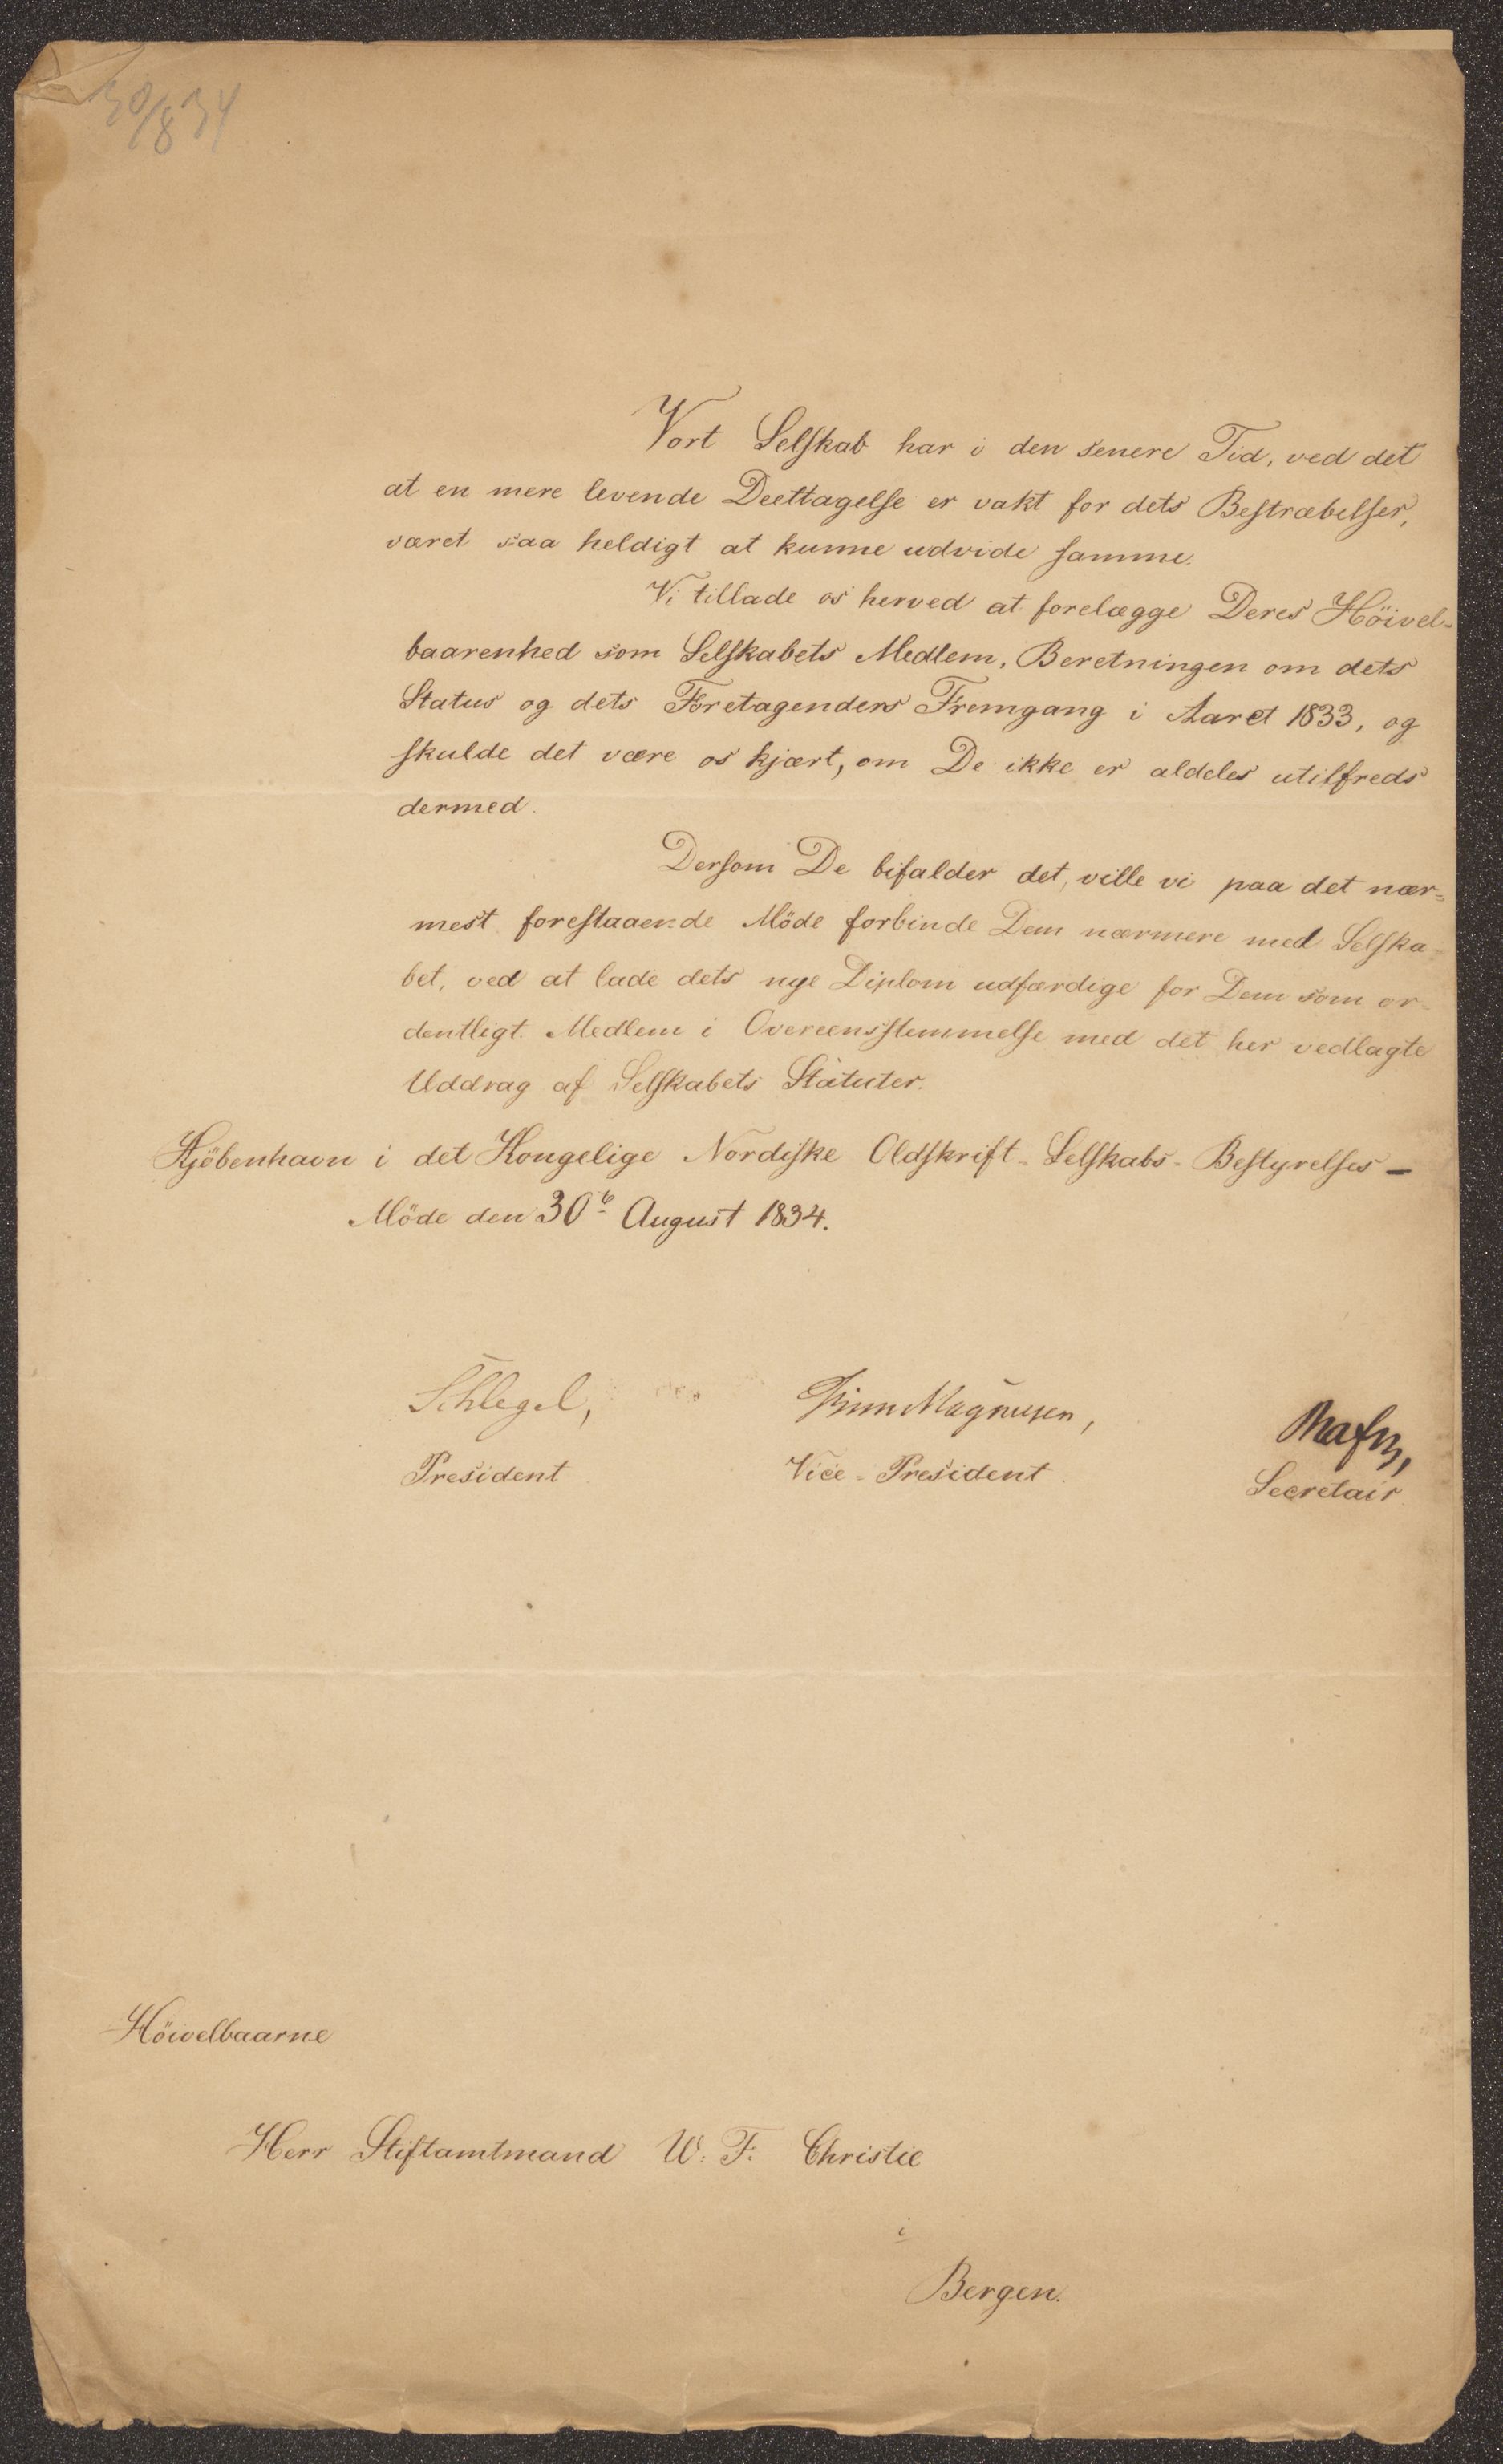 30/8 34
Vort Selskab har i den senere Tid, ved det
at en mere levende Deeltagelse er vakt for dets Bestræbelser,
været saa heldigt at kunne udvide samme.
Vi tillade os herved at forelægge Deres Höivel-
baarenhed som Selskabets Medlem, Beretningen om dets
Status og dets Foretagenders Fremgang i Aaret 1833, og
skulde det være os kjært, om De ikke er aldeles utilfreds
dermed.
Dersom De bifalder det, ville vi paa det nær-
mest forestaaende Möde forbinde Dem nærmere med Selska-
bet, ved at lade dets nye Diplom udfærdige for Dem som or-
dentligt Medlem i Overeensstemmelse med det her vedlagte
Uddrag af Selskabets Statuter.
Kjöbenhavn i det Kongelige Nordiske Oldskrift-Selskabs-Bestyrelses-
Möde den 30te August 1834.
Schlegel, Finn Magnusen, Rafn,
President Vice-President Secretair
Höivelbaarne
Herr Stiftamtmand W. F. Christie
i
Bergen.